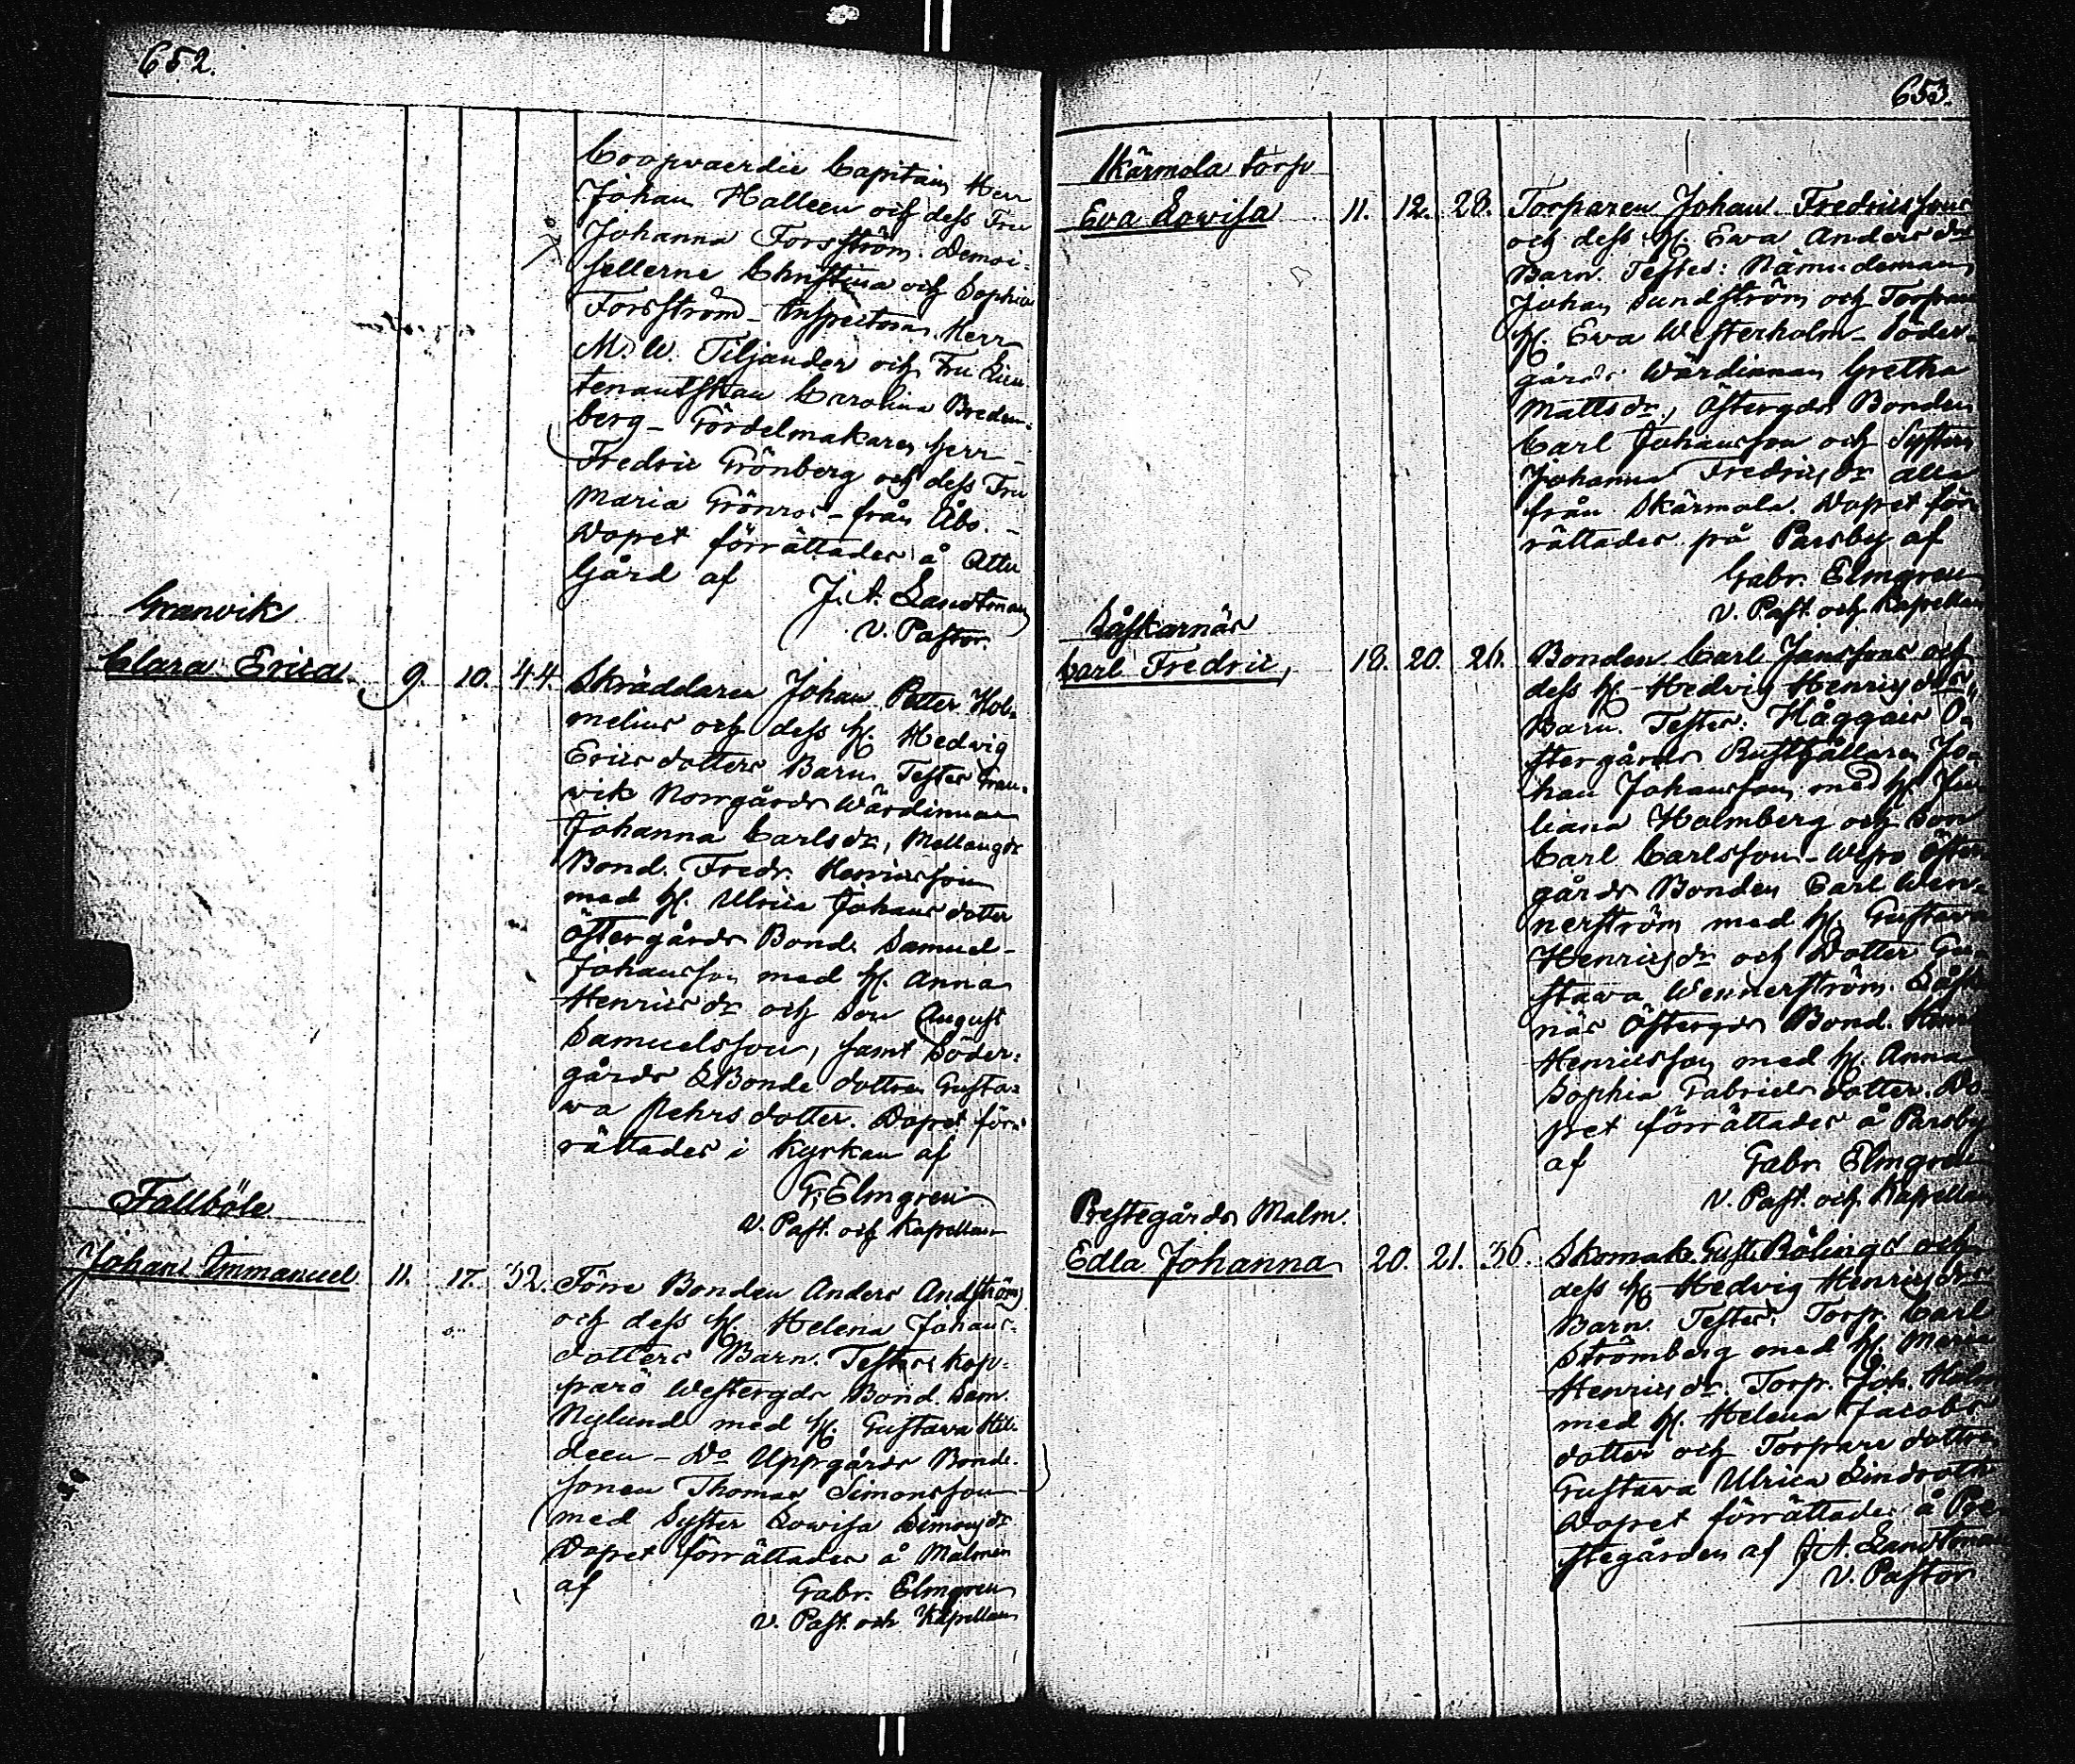 652.
Coopvaerdie Capitain Herr
Johan Halleen och dess Fru
Johanna Forsström. Demoi-
sellerne Christina och Sophia
Forsström – Inspectoren Herr
M. W. Tiljander och Fru Lieu
tenantskan Carolina Breden-
berg – Gördelmakaren Herr
Fredric Grönberg och dess Fru
Maria Grönros – från Åbo. –
Dopet förrättades å Attu
Gård af
J. A. Sandtman
V. Pastor.
Granvik
Clara Erica 9. 10. 44. Skräddaren Johan Petter Hol-
melius och dess H. Hedvig
Ericsdotters Barn. Testes Gran-
vik Norrgårds Wärdinnan
Johanna Carlsdr, Mellangds
Bond. Fredr. Henricsson
med H. Ulrica Johansdotter
Östergårds Bond. Samuel
Johansson med H. Anna
Henricsdr och Son August
Samuelsson, samt Söder-
gårds Bonde dottren Gusta-
va Pehrsdotter. Dopet för-
rättades i Kyrkan af
G. Elmgren
V. Past. och Kapellan
Fallböle
Johan Immanuel 11. 17. 32. Förre Bonden Anders Andström
och dess H. Helena Johans-
dotters Barn. Testes: Kop-
parö Westergds Bond. Sam.
Nylund med H. Gustava
deen – Do Uppgårds Bonde-
sonen Thomas Simonsson
med Syster Lowisa Simonsdr
Dopet förrättades å Malmen
af
Gabr. Elmgren
V. Past. och Kapellan
653.
Skärmola torp
Eva Lowisa 11. 12. 28. Torparen Johan Fredricssons
och dess H. Eva Andersdrs
Barn. Testes: Nämndeman
Johan Sundström och
H. Eva Westerholm – Söder-
gårds Wärdinnan Gretha
Mattsdr, Östergds Bonden
Carl Johansson och Systern
Johanna Fredricsdr alla
från Skärmola. Dopet för-
rättades på Parsby af
Gabr. Elmgren
V. Past. och Kapellan
Låskarnäs
Carl Fredric, 18. 20. 26. Bonden Carl Janssons och
dess H. Hedvig Henricsdrs
Barn. Testes: Håggais Ö-
stergårds Rusthållaren Jo-
han Johansson med H. Ju
liana Holmberg och Son
Carl Carlsson – Öster
gårds Bonden Carl Wen-
nerström med H. Gustava
Henricsdr och Dotter Gu-
stava Wennerström.
näs Östergds Bond.
Henricsson med H. Anna
Sophia Gabrielsdotter. Do-
pet förrättades å Parsby
af
Gabr. Elmgren
V. Past. och Kapellan
Prestegårds Malm.
Edla Johanna 20. 21. 36. Skomak. Gust. Rölings och
dess H. Hedvig Henricsdrs
Barn. Testes: Torp. Carl
Strömberg med H. Maria
Henricsdr. Torp. Joh. Holm
med H. Helena Jacobs
dotter och Torpare dottren
Gustava Ulrica Lindroth
Dopet förrättades å Pre
stegården af J. A. Sandtman
V. Pastor